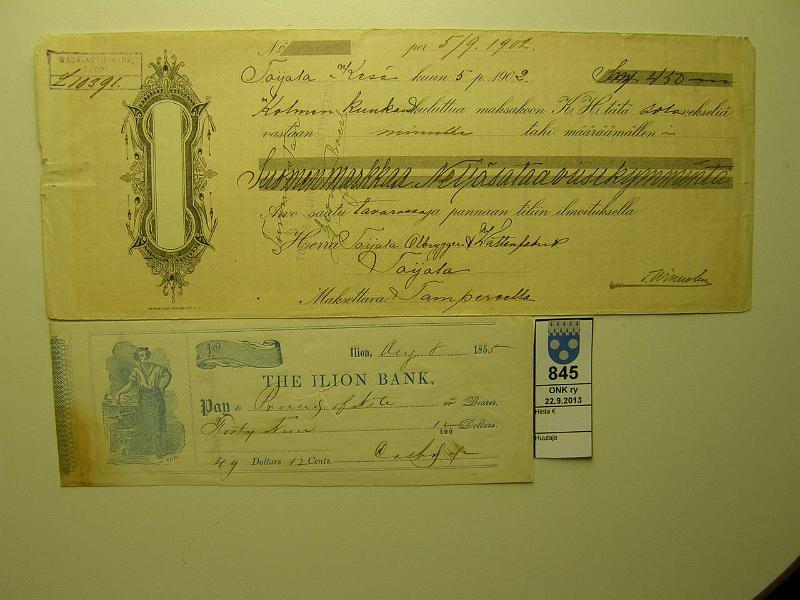 WASA-AKTIE-BANK,
L10391.
No
per 5/9. 1902.
Toijala Kesä kuun 5 p. 1902. Smk 450
Kolmen kuukauden kuluttua maksakoon K. H. tätä sola vekseliä
vastaan minulle tahi määräämälleni
Suomenmarkkaa Neljäsataaviisikymmentä
Arvo saatu tavarassa ja pannaan tiliin ilmoituksella
Herra Toijala Ölbryggeri &
Toijala
Maksettava: Tampereella
No
Ilion, Aug 8 1855
THE ILION BANK,
Pay to of Note or Bearer,
Forty Nine 12/100 Dollars.
49 Dollars 12 Cents.
845
ONK ry
22.9.2013
Hinta €
Huutaja